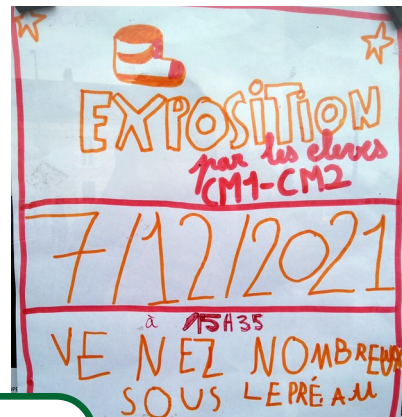 EXPOSITION
par les eleves
CM1-CM2
7/12/2021
à 15H35
VENEZ NOMBREUX
SOUS LE PRÉAU